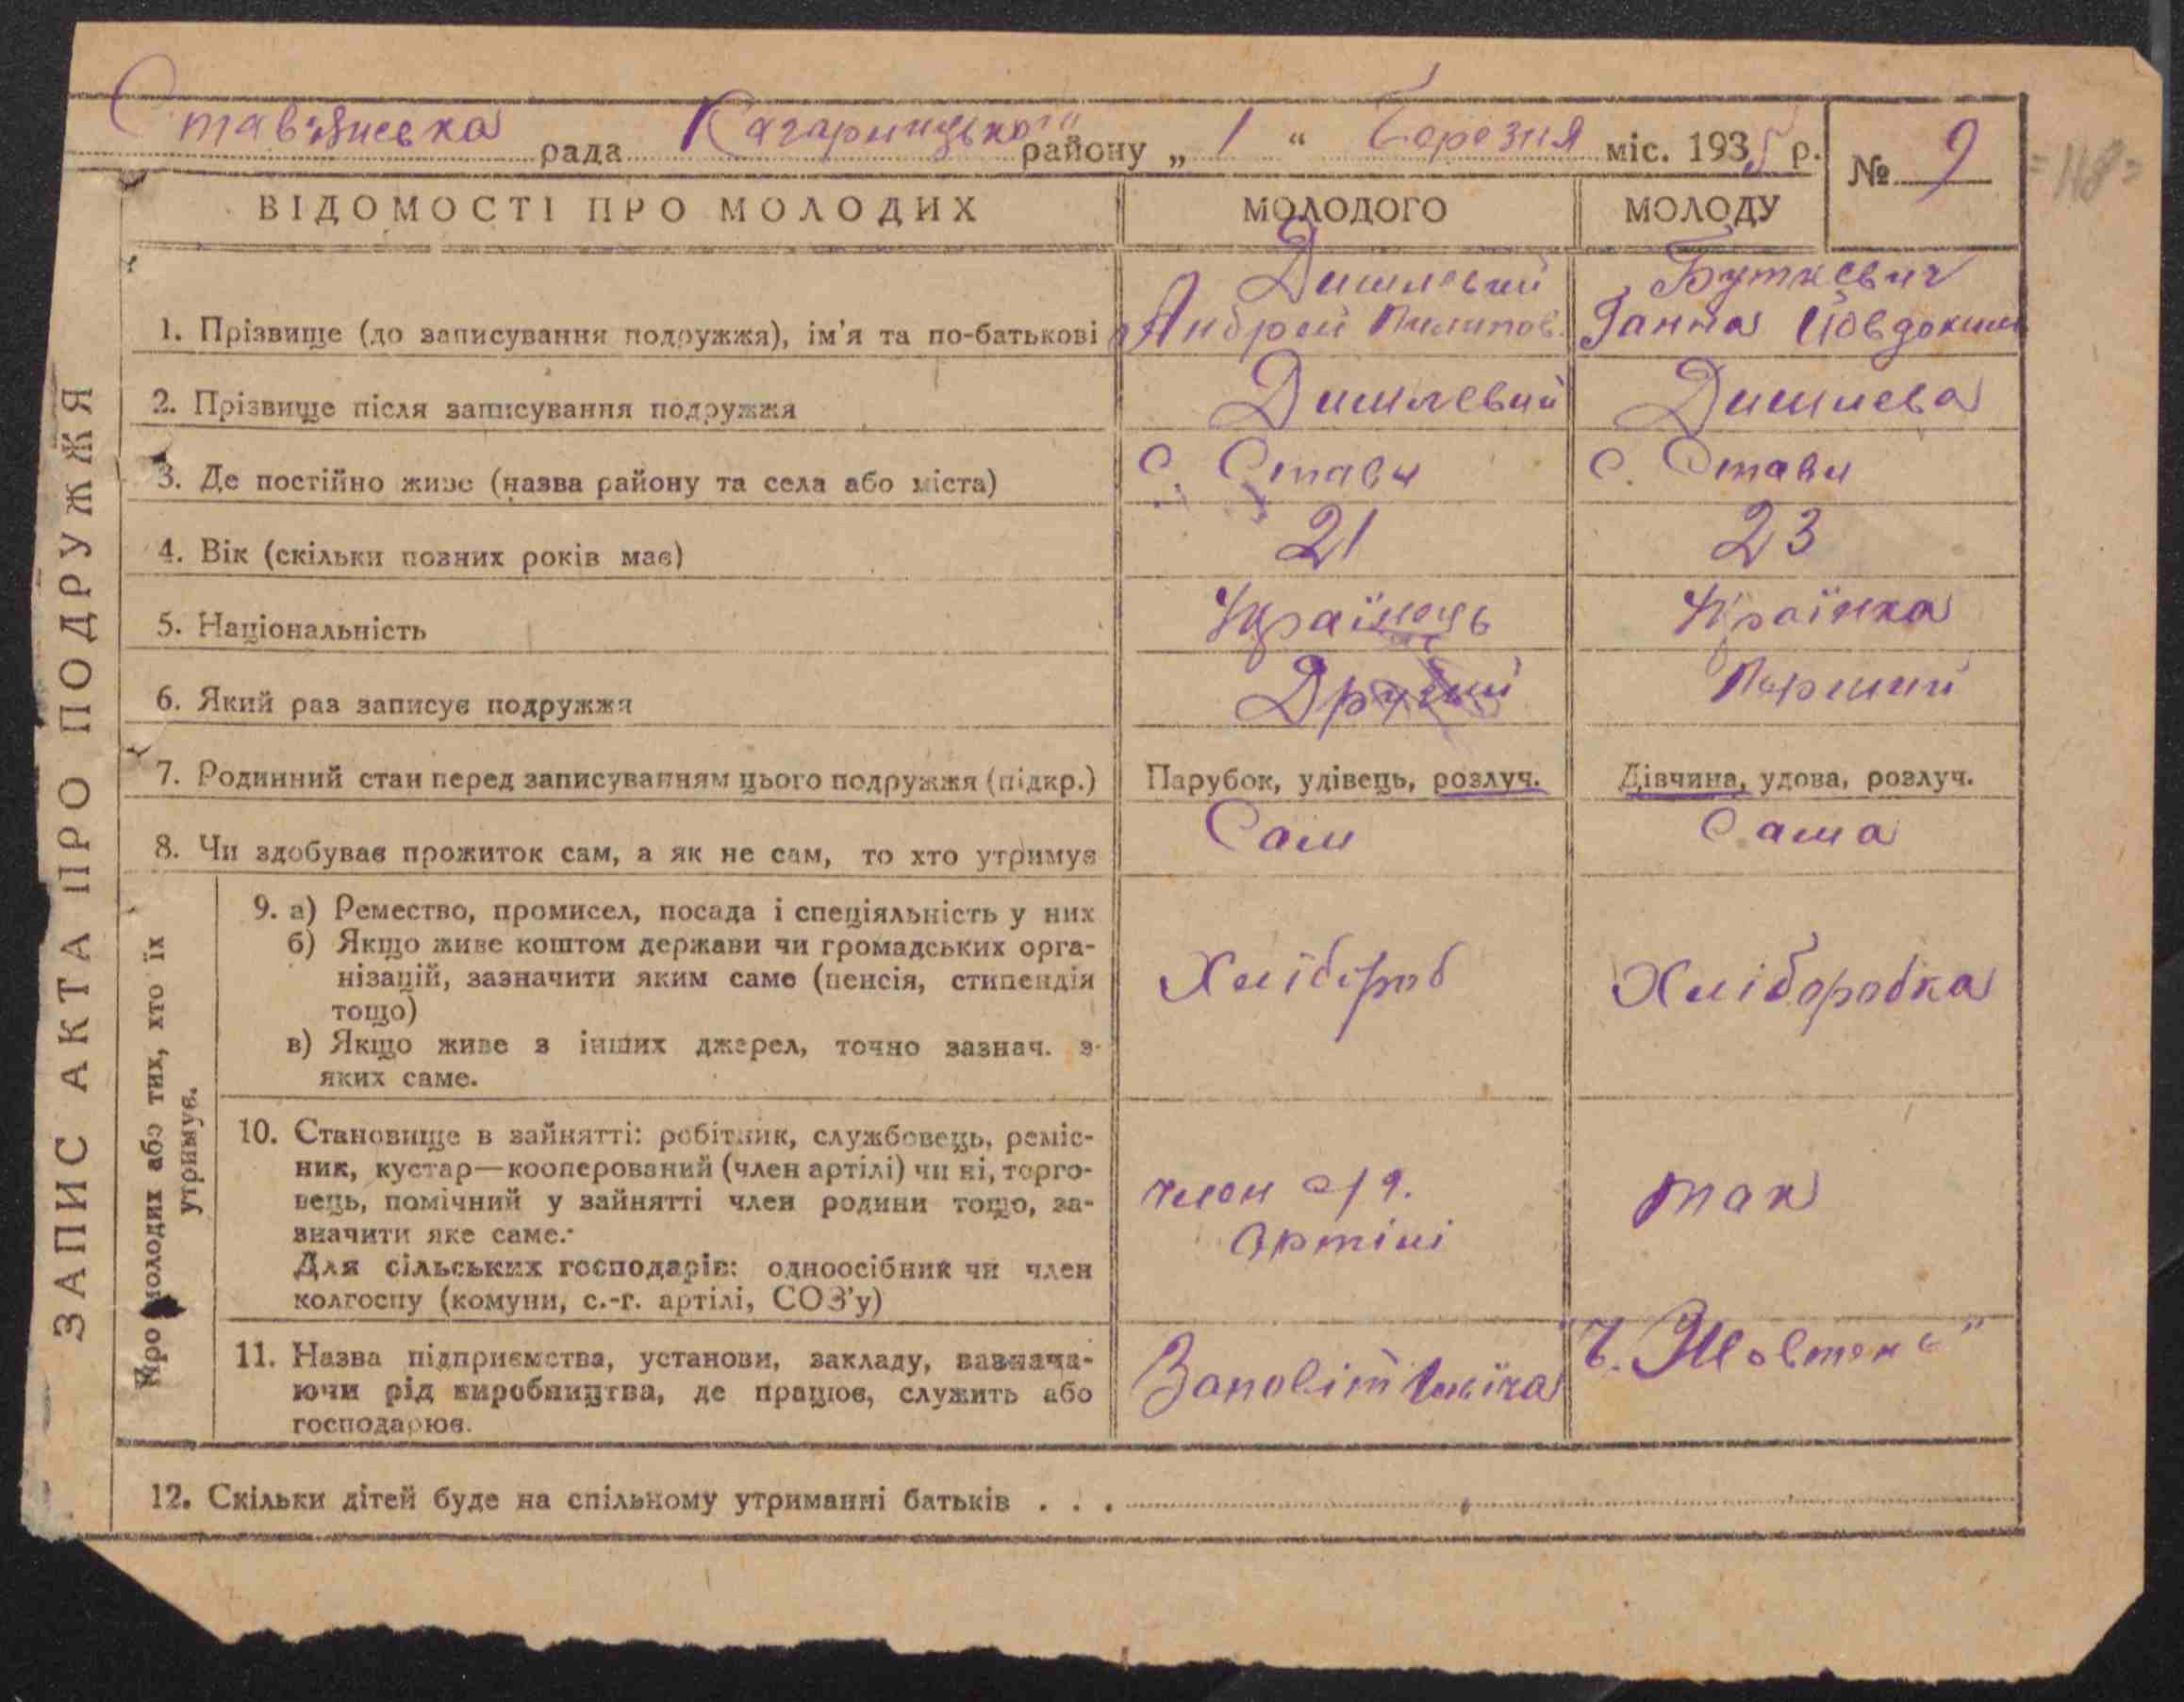 рада Кагарлицького району „ 1 “ Березня міс. 1935 р.
№ 9
= 118 =
ЗАПИС АКТА ПРО ПОДРУЖЖЯ
ВІДОМОСТІ ПРО МОЛОДИХ МОЛОДОГО МОЛОДУ
Дишлевий Буткевич
1. Прізвище (до записування подружжя), ім’я та по-батькові Андрей Пилипов. Ганна Йовдоким
2. Прізвище після записування подружжя Дишлевий Дишлева
3. Де постійно живе (назва району та села або міста) с. Стави с. Стави
4. Вік (скільки повних років має) 21 23
5. Національність Українець Українка
6. Який раз записує подружжя Другий Перший
7. Родинний стан перед записуванням цього подружжя (підкр.) Парубок, удівець, розлуч. Дівчина, удова, розлуч.
8. Чи здобуває прожиток сам, а як не сам, то хто утримує Сам Сама
Про молодих або тих, хто їх
утримує.
9. а) Ремество, промисел, посада і спеціяльність у них
б) Якщо живе коштом держави чи громадських орга-
нізацій, зазначити яким саме (пенсія, стипендія
тощо)
в) Якщо живе з інших джерел, точно зазнач. з
яких саме.
Хлібороб Хліборобка
10. Становище в зайнятті: робітник, службовець, реміс-
ник, кустар—кооперований (член артілі) чи ні, торго-
вець, помічний у зайнятті член родини тощо, за-
значити яке саме.
Для сільських господарів: одноосібник чи член
колгоспу (комуни, с.-г. артілі, СОЗ’у)
член с/г. так
артілі
11. Назва підприємства, установи, закладу, вазнача-
ючи рід виробництва, де працює, служить або
господарює.
Заповіт Ілліча "Ч. Жовтень"
12. Скільки дітей буде на спільному утриманні батьків . . .